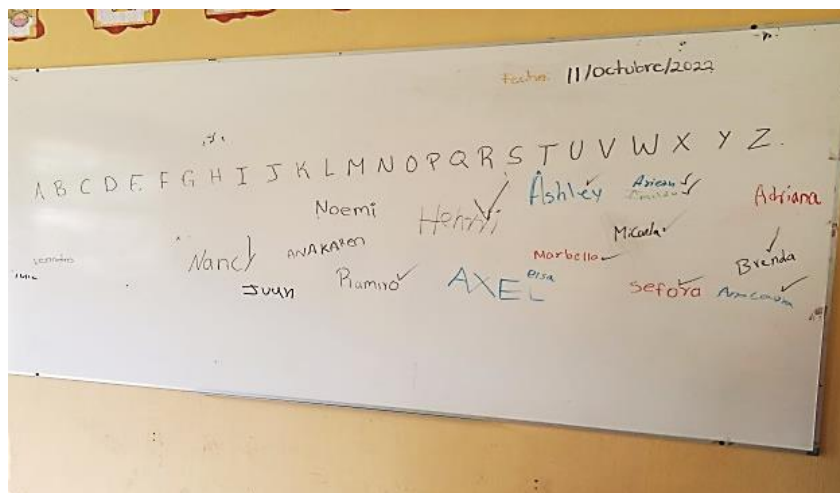 Fecha: 11/Octubre/2022
A B C D E F G H I J K L M N O P Q R S T U V W X Y Z
Ashley
Adriana
Noemi
Henrri
Micaela
Nancy
ANAKAREN
Marbella
Brenda
Juun
Ramiro
AXEL
elsa
Sefora